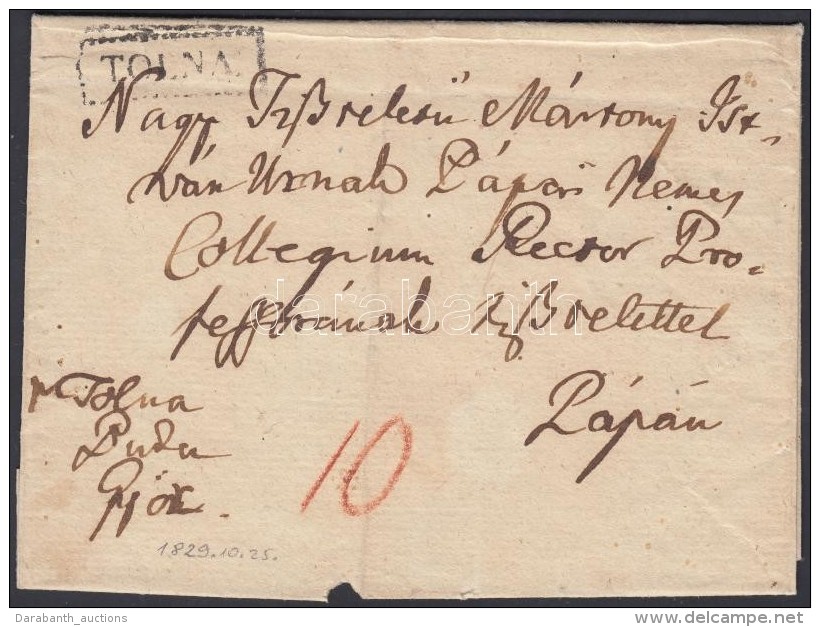 TOLNA
Nagy Tiſzteletü Mártony Ist-
ván Urnak Pápai Nemes
Collegium Rector Pro-
feſſorának tiſztelettel
Pápán
pr Tolna
Buda
Győr.
10
1829.10.25.
darabanth
Darabanth_auctions
www.delcampe.net